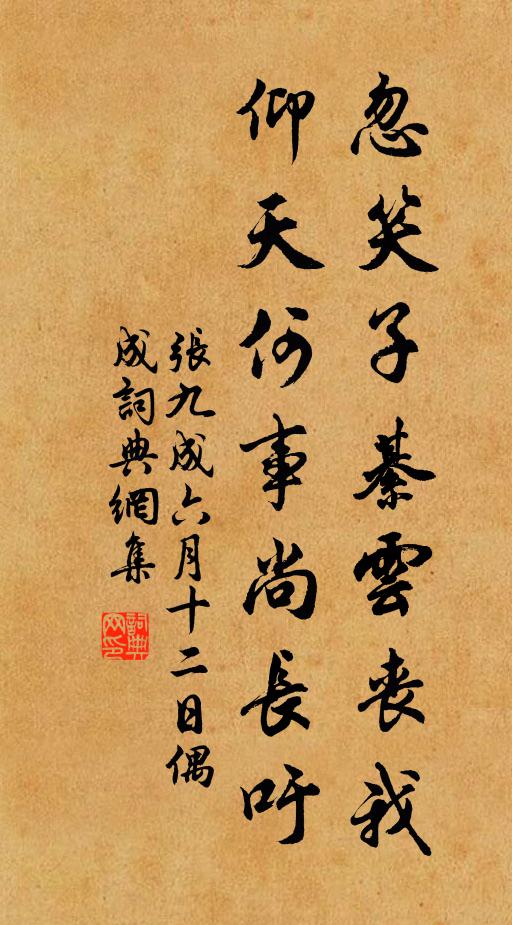 忽笑子綦雲喪我
仰天何事尚長吁
張九成六月十二日偶
成詞典網集
詞典
网印